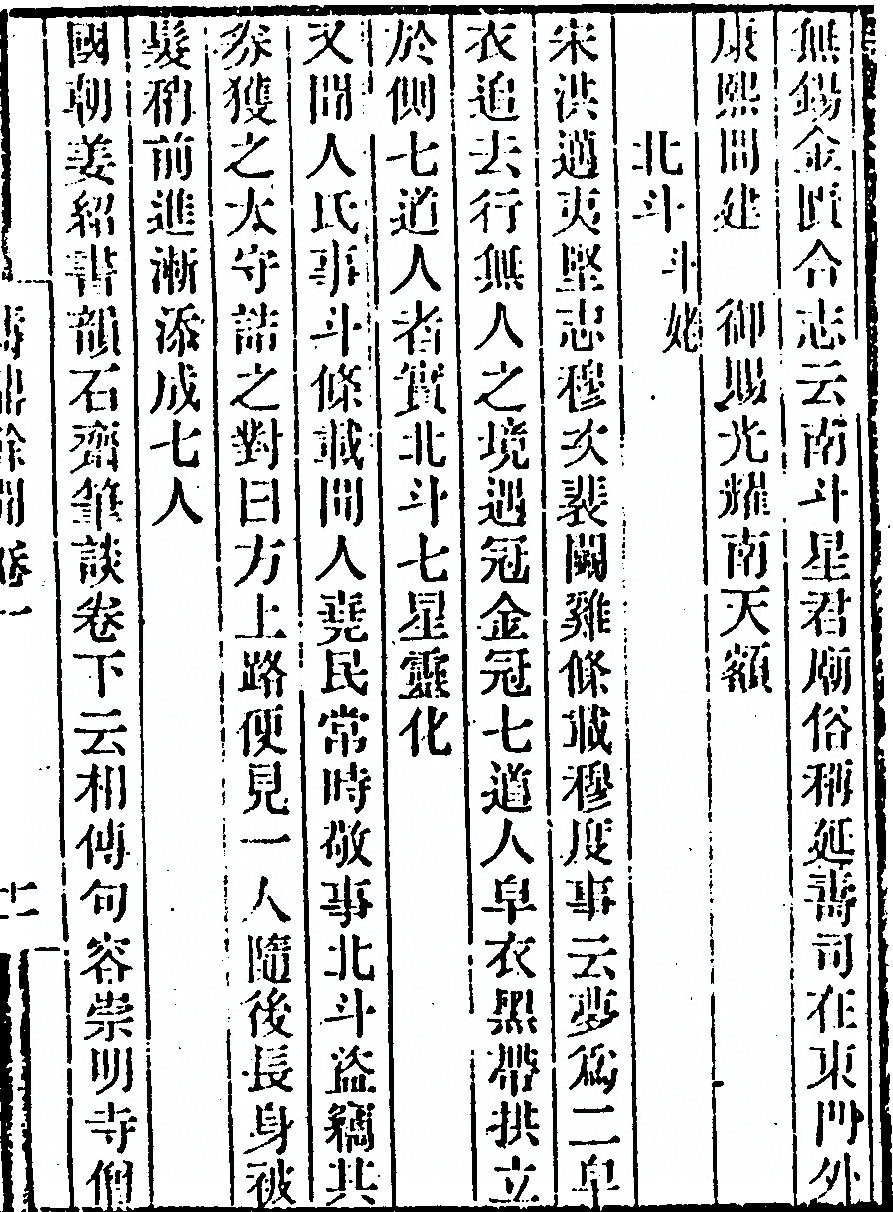 無錫金匱合志云南斗星君廟俗稱延壽司在東門外
康熙間建　御賜光耀南天額
北斗斗姥
宋洪邁夷堅志穆次裴鬭雞條載穆度事云夢爲二皁
衣追去行無人之境遇冠金冠七道人皁衣黑帶拱立
於側七道人者實北斗七星靈化
又閻人氏事斗條載閻人堯民常時敬事北斗盜竊其
券獲之太守詰之對曰方上路便見一人隨後長身被
髮稍前進漸添成七人
國朝姜紹書韻石齋筆談卷下云相傳句容崇明寺僧
卷一
十一